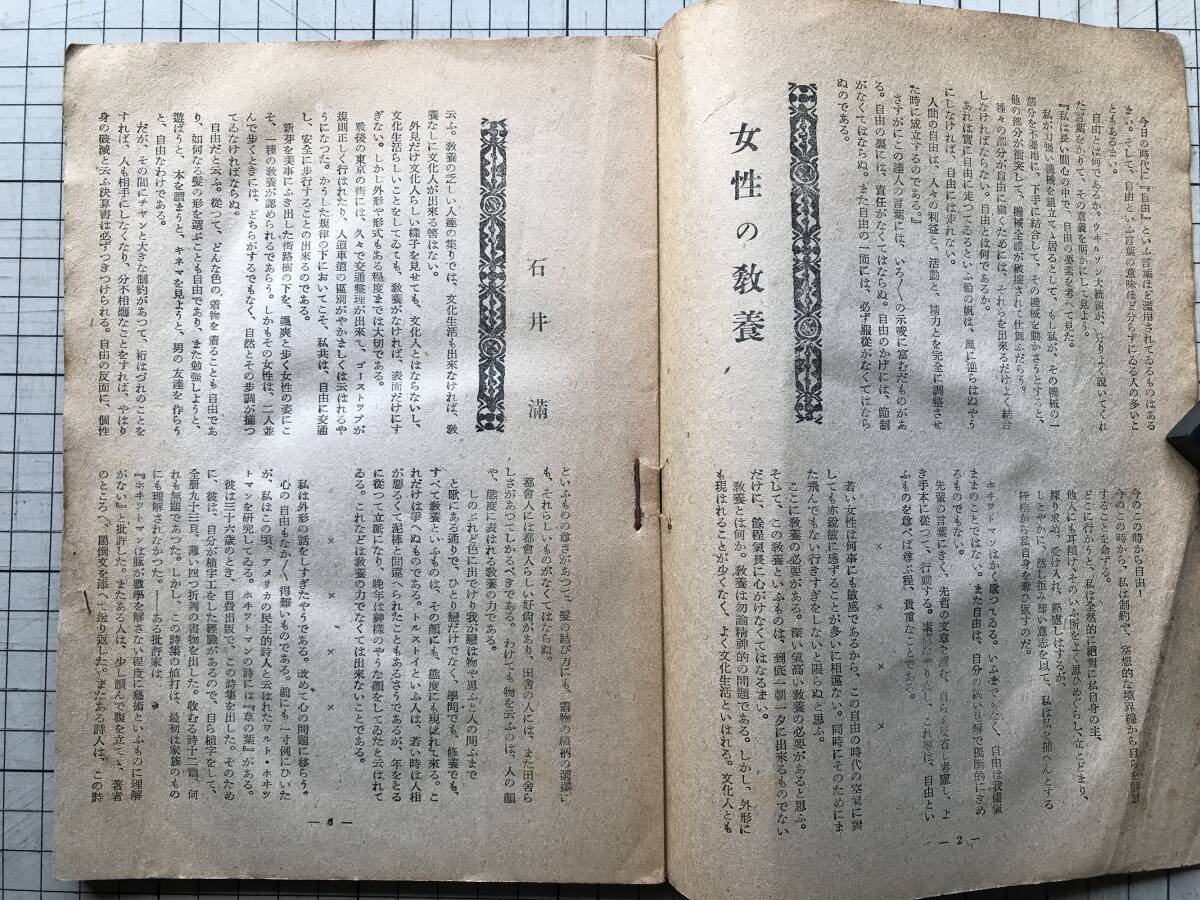 女性の教養
石井滿
今日の時代に『自由』といふ言葉ほど濫用されてゐるものはある
まい。そして、自由といふ言葉の意味ほど分らずにゐる人の多いこ
ともあるまい。
自由とは何であるか。ウヰルソン大統領が、分りよく説いてくれ
た言葉をかりて、その意義を明かにして見よう。
『私は長い間心の中で、自由の要素を考へて見た。
私が力強い機械を組立て上居るとして、もし私が、その機械の一
部分を不器用に、下手に結合して、その機械を動かさうとすると、
他の部分が衝突して、機械全體が破壞されて仕舞ふだらう。
種々の部分が自由に動くためには、それらを出來るだけよく結合
しなければならない。自由とは何であるか。
あれは實に自由に走つてゐるといふ船の帆は、風に逆らはぬやう
にしなければ、自由には走れない。
人間の自由は、人々の利益と、活動と、精力とを完全に調整させ
た時に成立するのである。』
さすがにこの達人の言葉には、いろ〳〵の示唆に富むだものがあ
る。自由の裏には、責任がなくてはならぬ。自由のかげには、節制
がなくてはならぬ。また自由の一面には、必ず服從がなくてはなら
ぬのである。
今のこの時から自由!
今のこの時から、私は制約や、空想的な境界線から自らを解放
することを命ずる。
どこに行かうと、私は全然的に絕對に私自身の主、
他人にも耳傾け、そのいふ所をよく思ひめぐらし、立とどまり、
探り求め、受け入れ、熟慮しはするが、
しとやかに、然し拒み難い意志を以て、私は私を捕へんとする
桎梏から私自身を奪ひ返すのだ。
ホヰツトマンはかく歌つてゐる。いふまでもなく、自由は我儘氣
まゝのことではない。また自由は、自分の狹い見解で獨斷的にきめ
るものでもない。
先輩の言葉にきゝ、先哲の文章を讀む、自らも反省し考慮し、よ
き手本に從つて、行動する。
ふものを尊べば尊ぶ程、貴重なことである。
×　×　×　×
若い女性は何事にも敏感であるから、この自由の時代の空氣に對
しても亦銳敏に感ずることが多いに相違ない。同時にそのためにま
た飛んでもない行きすぎをしないとも限らぬと思ふ。
ここに敎養の必要がある。深い氣高い敎養の必要があると思ふ。
そして、この敎養といふものは、到底一朝一夕に出來るものでない
だけに、餘程氣長に心がけなくてはなるまい。
敎養とは何か。敎養は勿論精神的の問題である。しかし、外形に
も現はれることが少くなく、よく文化生活といはれる。文化人とも
— 2 —
云ふ。敎養の乏しい人達の集りでは、文化生活も出來なければ、敎
養なしに文化人が出來る筈はない。
外見だけ文化人らしい樣子を見せても、文化人とはならないし、
文化生活らしいことをしてゐても、敎養がなければ、表面だけにす
ぎない。しかし外形や形式もある程度までは大切である。
戰後の東京の街には、久々で交通整理が出來て、ゴーストツプが
規則正しく行はれたり、人道車道の區別がやかましくは云はれるや
うになつた。かうした規律の下においてこそ、私共は、自由に交通
し、安全に步行することの出來るのである。
新芽を美事にふき出した街路樹の下を、颯爽と步く女性の姿にこ
そ、一種の敎養が認められるであらう。しかもその女性は、二人並
んで步くときには、どちらがするでもなく、自然とその步調が揃つ
てゐなければならぬ。
自由だと云ふ。從つて、どんな色の、着物を着ることも自由であ
り、如何なる髮の形を選ぶことも自由であり、また勉强しようと、
遊ばうと、本を讀まうと、キネマを見ようと、男の友達を作らう
と、自由なわけである。
だが、その間にチヤンと大きな制約があつて、裄はづれのことを
すれば、人も相手にしなくなり、分不相應なことをすれば、やはり
身の破滅と云ふ決算書は必ずつきつけられる。自由の反面に、個性
といふものの尊さがあつて、髮の結び方にも、着物の縞柄の選擇に
も、それらしいものがなくてはならぬ。
都會人には都會人らしい好尙があり、田舍の人には、また田舍ら
しさがあつてしかるべきである。わけても物を云ふのは、人の顏
や、態度に表はれる敎養の力である。
しのぶれど色に出でけり我が戀は物や思ふと人の問ふまで
と歌にある通りで、ひとり戀だけでなく、學問でも、修養でも、
すべて敎養といふものは、その顏にも、態度にも現はれて來る。こ
れだけは爭へぬものである。トルストイといふ人は、若い時は人相
が惡るくて泥棒と間違へられたこともあるさうであるが、年をとる
に從つて立派になり、晚年は神樣のやうな顏をしてゐたと云はれて
ゐる。これなどは敎養の力でなくては出來ないことである。
×　×　×　×
私は外形の話をしすぎたやうである。改めて心の問題に移らう。
心の自由もなか〳〵得難いものである。前にも一寸例にひいた
が、私はこの頃、アメリカの民主的詩人と云はれたワルト・ホヰツ
トマンを硏究してゐる。ホヰツトマンの詩には『草の葉』がある。
彼は三十六歲のとき、自費出版で、この詩集を出した。そのため
に、彼は、自分が植字工をした經驗があるので、自ら植字をして、
全册九十三頁、薄い四つ折判の書物を出した。收むる詩十二篇、何
れも無題であつた。しかし、この詩集の値打は、最初は家族のもの
にも理解されなかつた。――ある批評家は
『ホヰツトマンは豚が數學を解さない程度に藝術といふものに理解
がない』と批評した。またある人は、少し讀んで腹を立てゝ、著者
のところへ、罵倒文を添へて送り返した。またある詩人は、この詩
— 3 —